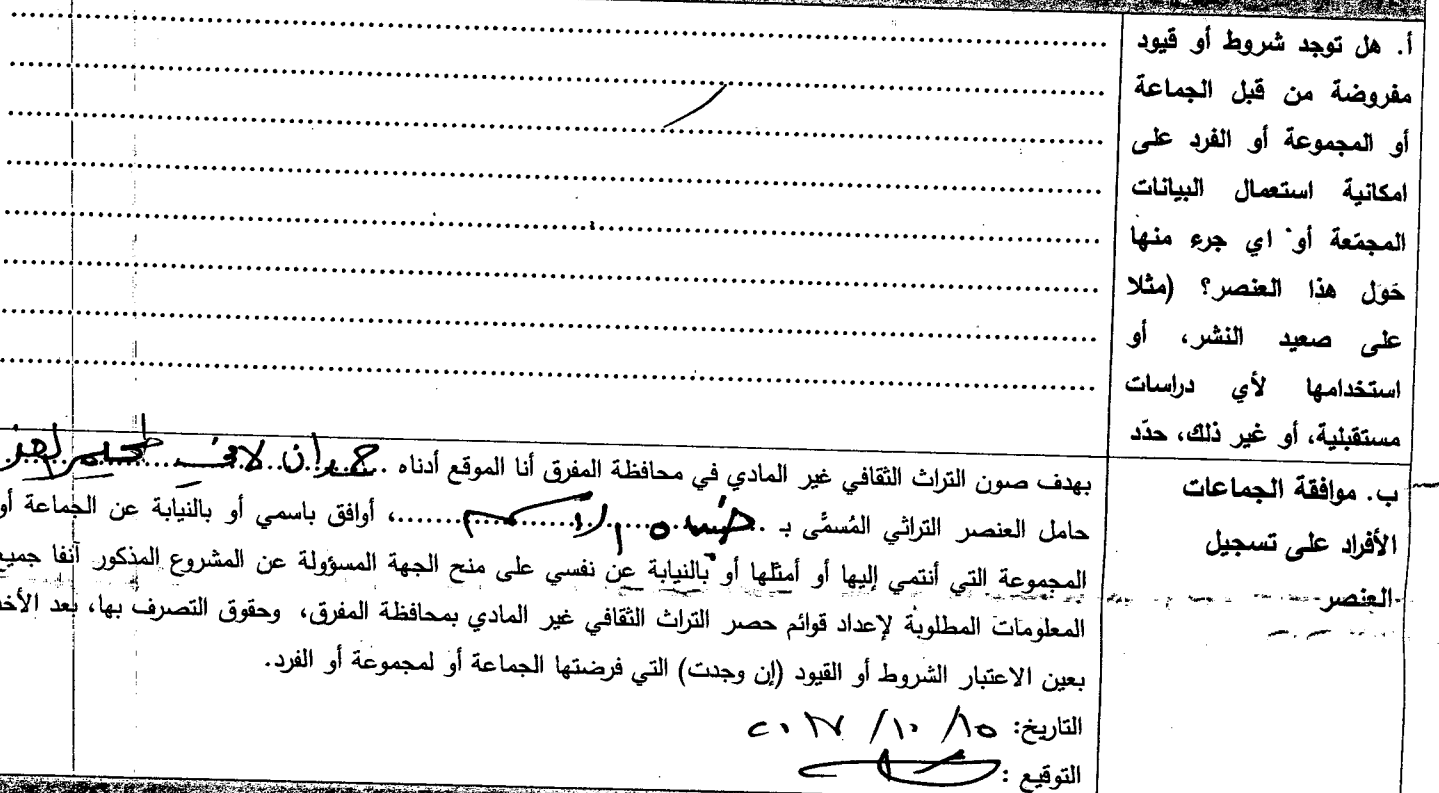 أ. هل توجد شروط أو قيود
مفروضة من قبل الجماعة
أو المجموعة أو الفرد على
امكانية استعمال البيانات
المجمّعة أو اي جرء منها
حَول هذا العنصر؟ (مثلا
على صعيد النشر، أو
استخدامها لأي دراسات
مستقبلية، أو غير ذلك، حدّد
ب. موافقة الجماعات
الأفراد على تسجيل
العنصر
بهدف صون التراث الثقافي غير المادي في محافظة المفرق أنا الموقع أدناه
حامل العنصر التراثي المُسمَّى بـ ............، أوافق باسمي أو بالنيابة عن الجماعة أو
المجموعة التي أنتمي إليها أو أمثلها أو بالنيابة عن نفسي على منح الجهة المسؤولة عن المشروع المذكور آنفا جميع
المعلومات المطلوبة لإعداد قوائم حصر التراث الثقافي غير المادي بمحافظة المفرق، وحقوق التصرف بها، بعد الأخذ
بعين الاعتبار الشروط أو القيود (إن وجدت) التي فرضتها الجماعة أو لمجموعة أو الفرد.
التاريخ: ١٥/ ١٠/ ٢٠١٧
التوقيع :